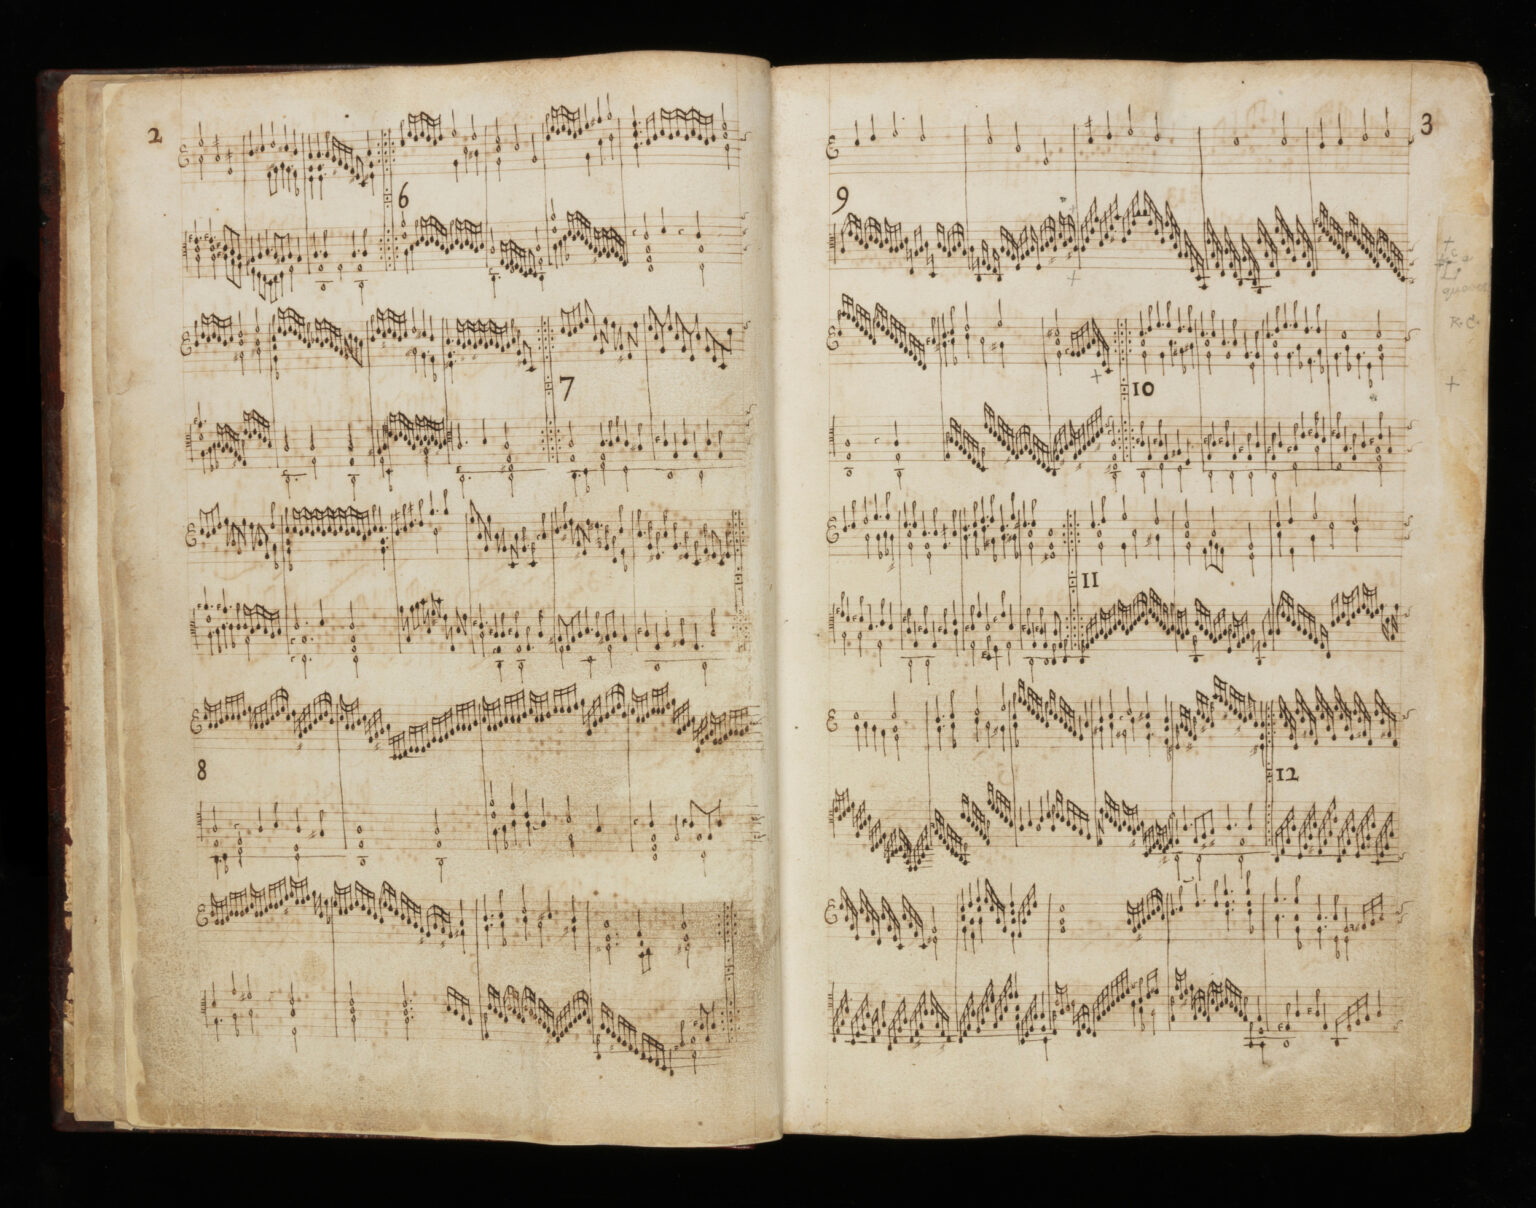 2
6
7
8
3
9
10
11
12
R.C.